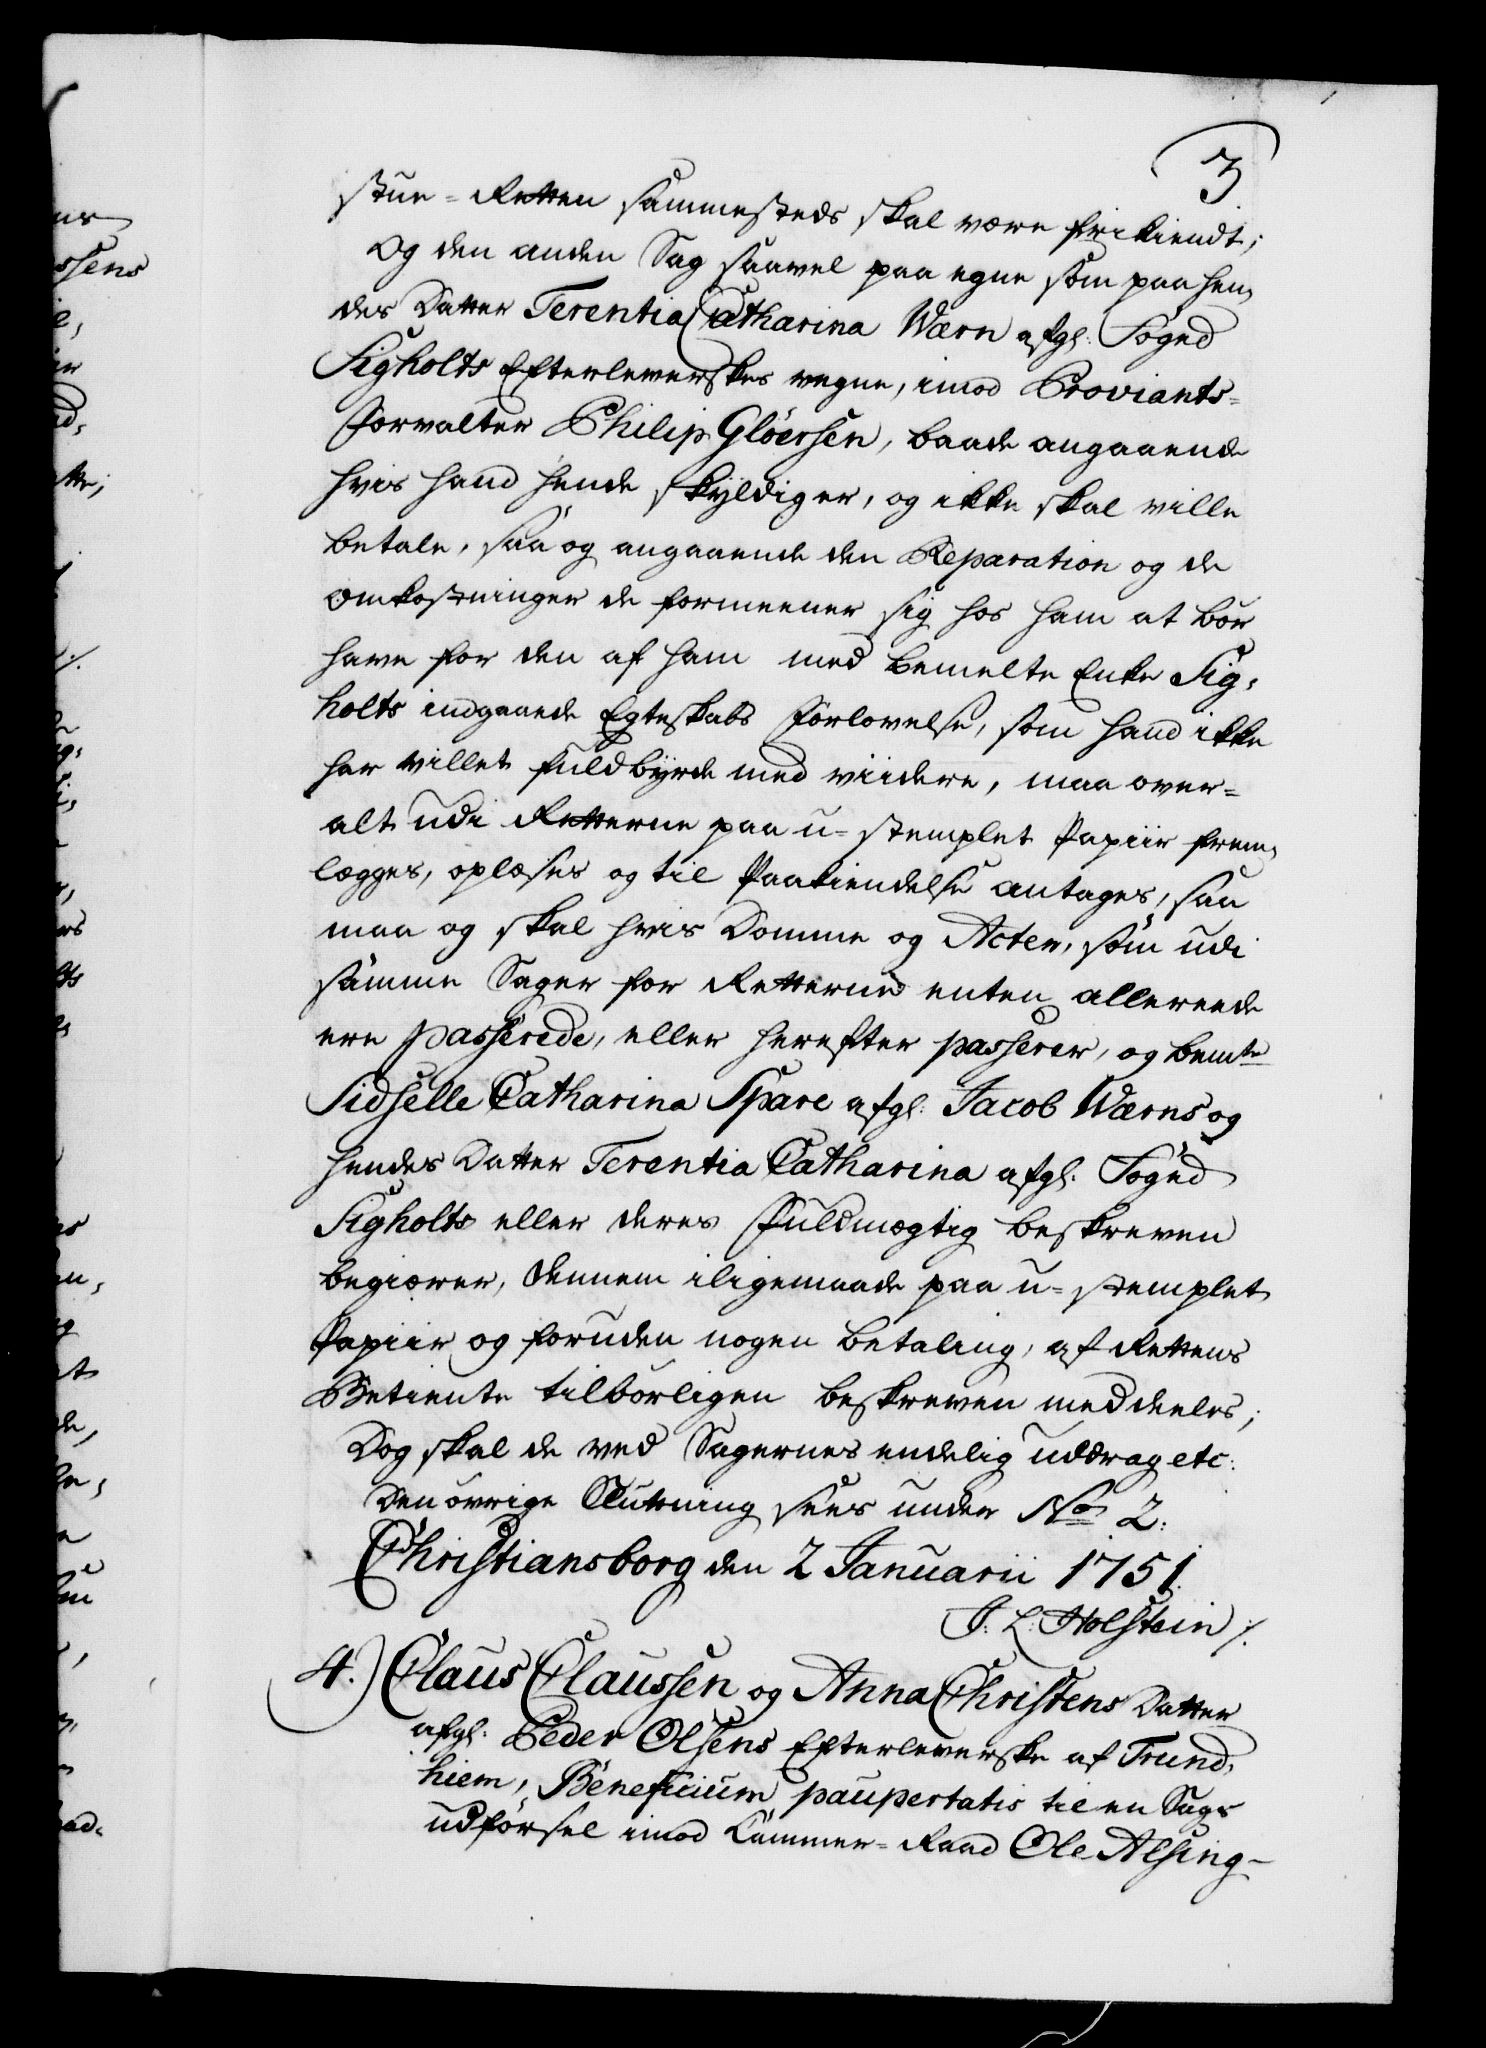 3
stue-Retten sammesteds skal være frikiendt;
Og den anden Sag saavel paa egne som paa hen,
des Datter Terentia Catharina Wærn afgl: Foged
Sigholts Efterleverskes vegne, imod Proviants-
forvalter Philip Gløersen, baade angaaende
hvis hand hende skyldig er, og ikke skal ville
betale, saa og angaaende den Reparation og de
omkostninger de formeener sig hos ham at bør
have for den af ham med bemelte Enke Sig,
holts indgaaede Egteskabs Forlovelse, som hand ikke
har villet fuldbyrde med viidere, maa over-
alt udi Retterne paa u-stemplet Papiir frem,
legges, oplæses og til Paakiendelse antages, saa
maa og skal hvis Domme og Acter, som udi
samme Sager for Retterne enten allereede
ere passerede, eller herefter passerer, og bemte
Sidselle Catharina Spare afgl: Jacob Wærns og
hendes Datter Terentia Catharina afgl: Foged
Sigholts eller deres Fuldmægtig beskreven
begierer, dennem iligemaade paa u-stemplet
Papiir og foruden nogen betaling, af Rettens
Betiente tilbørligen beskreven meddeeles;
Dog skal de ved Sagernes endelig uddrag etc:
Den øvrige Slutning sees under No 2:
Christiansborg den 2 Januarii 1751.
J: L: Holstein /.
4.) Claus Claussen og Anna Christens Datter
afgl: Peder Olsens Efterleverske af Trund,
hiem, Beneficium paupertatis til en Sags
udførsel imod Cammer-Raad Ole Alsing-